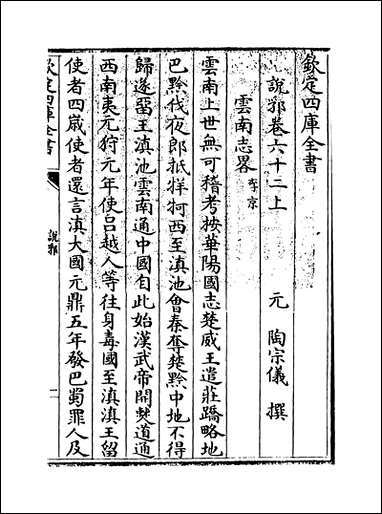 欽定四庫全書
說郛卷六十二上
元 陶宗儀 撰
雲南志畧 李京
雲南上世無可稽考按華陽國志楚威王遣莊蹻略地
巴黔伐夜郎抵牂牁西至滇池會秦奪楚黔中地不得
歸遂留王滇池雲南通中國自此始漢武帝開僰道通
西南夷元狩元年使呂越人等往身毒國至滇滇王留
使者四嵗使者還言滇大國元鼎五年發巴蜀罪人及
欽定四庫全書
說郛